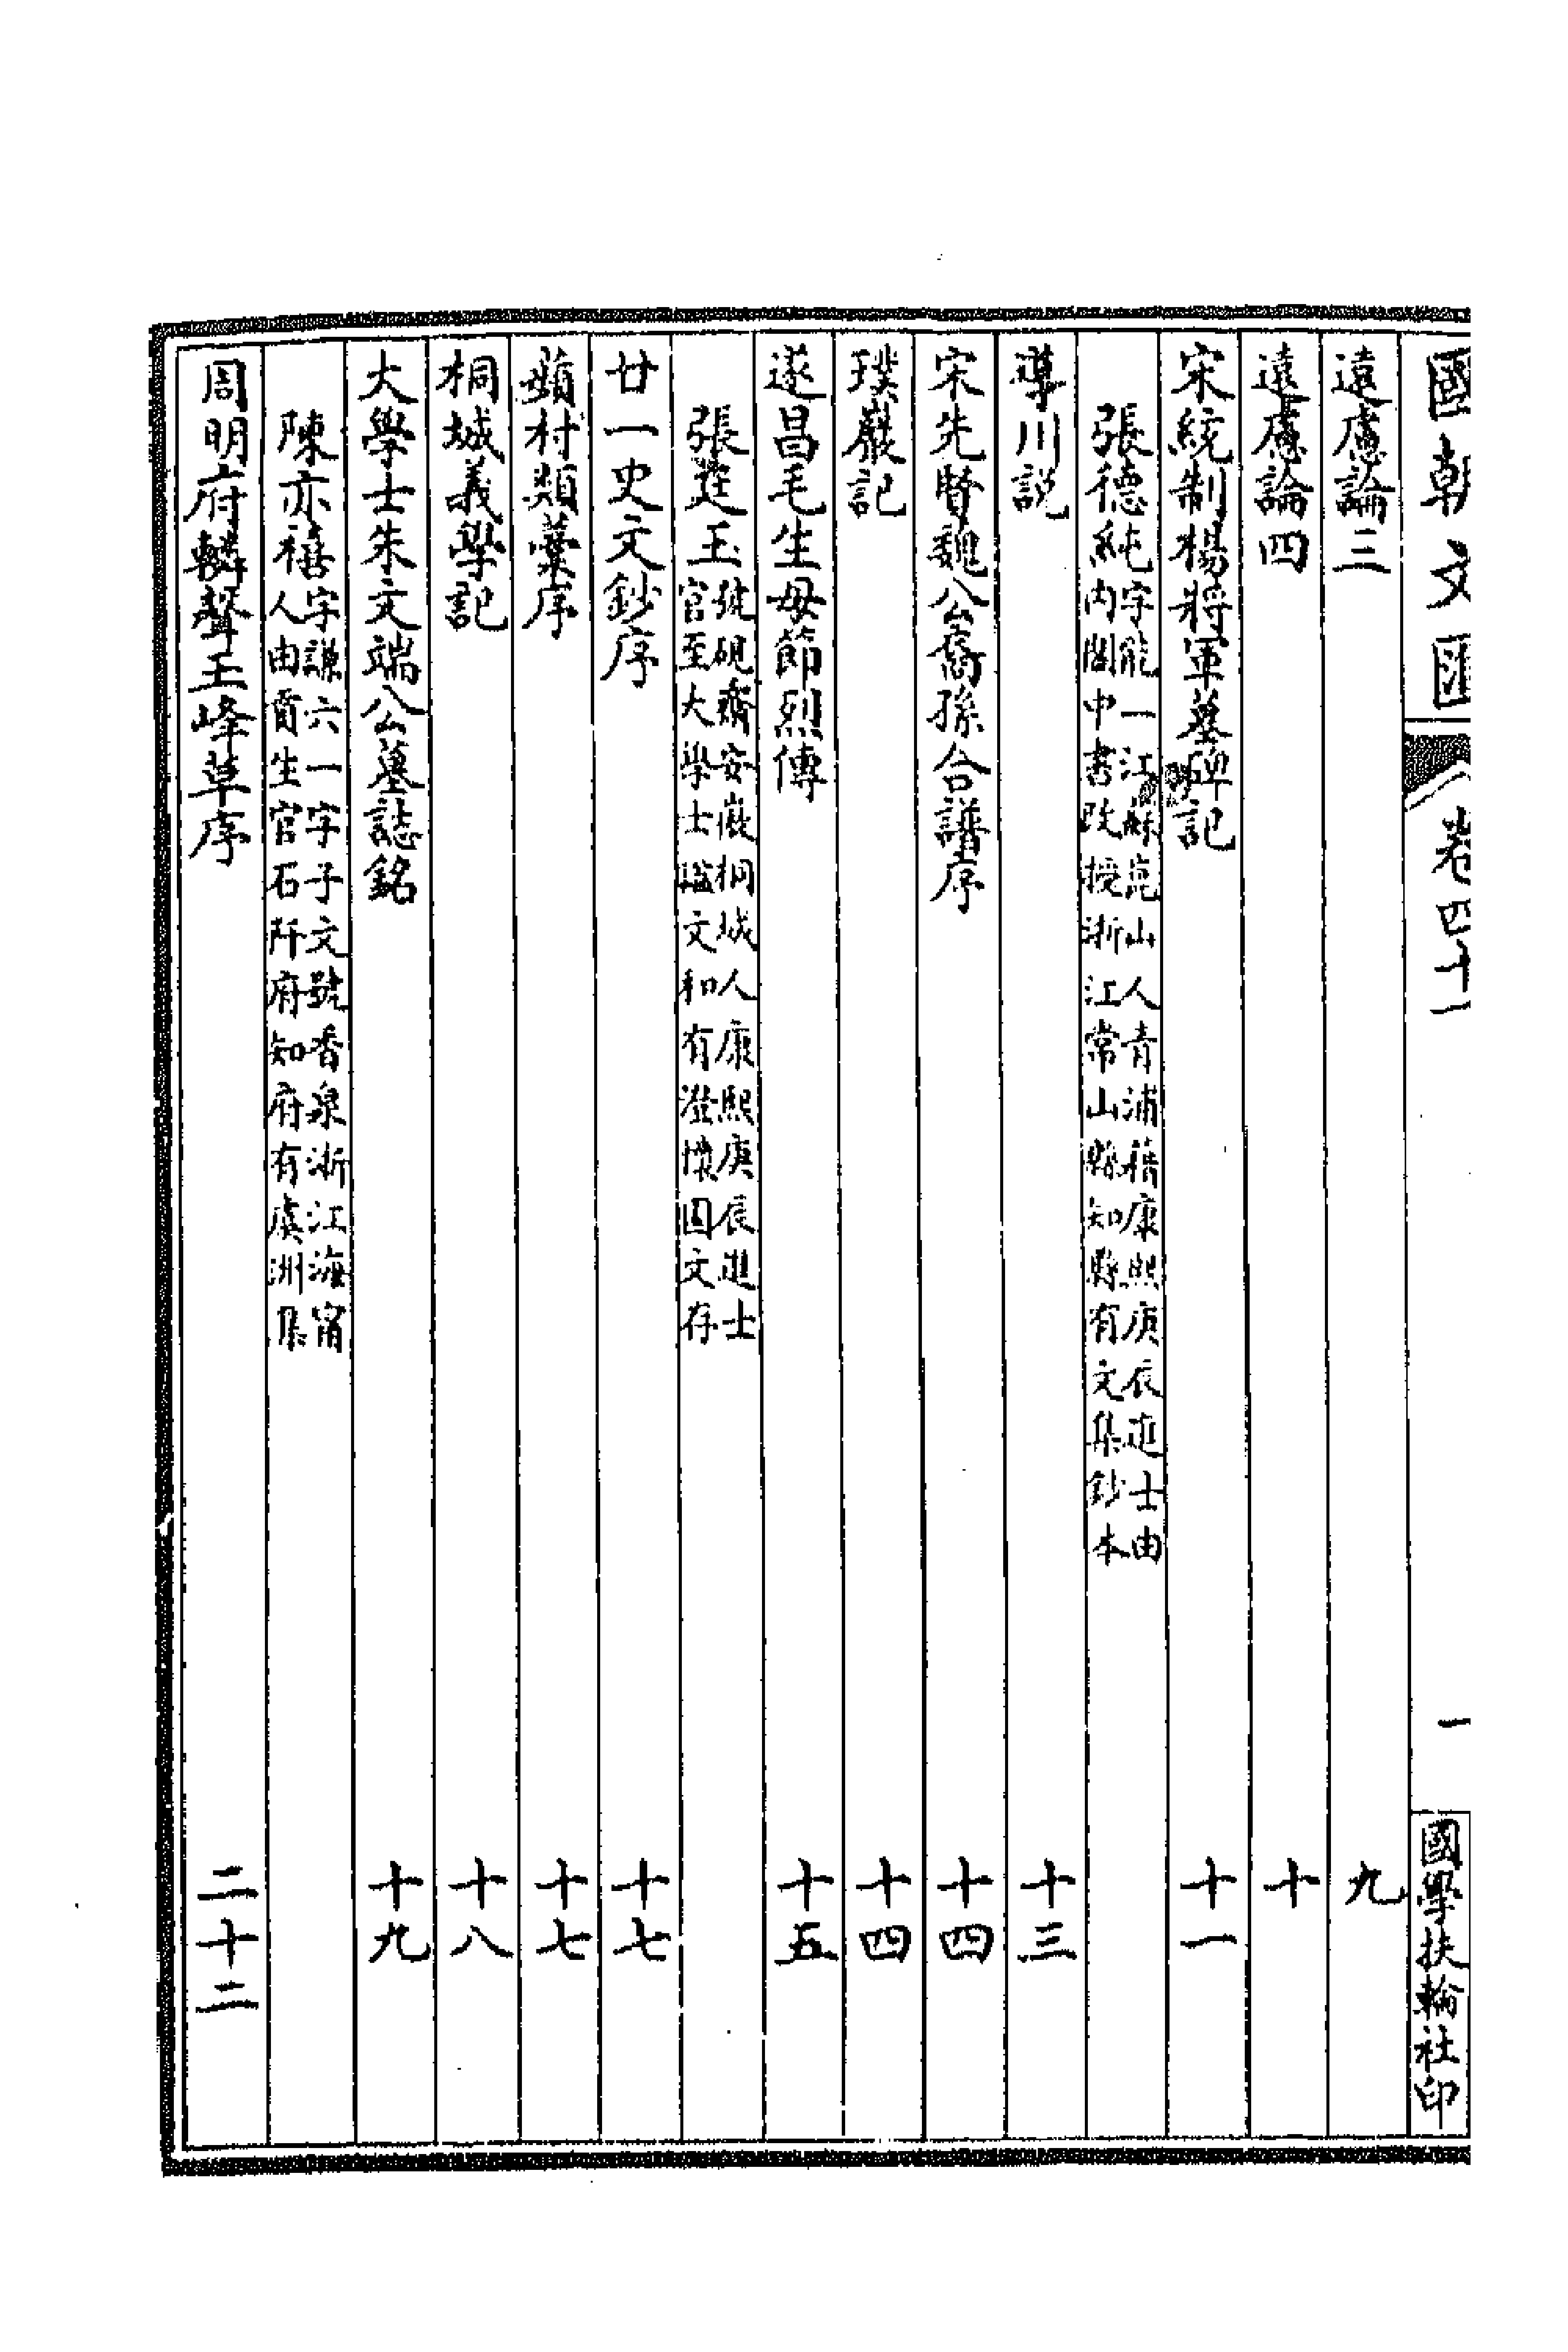 國朝文匯 卷四十一 一 國學扶輪社印
遠慮論三 九
遠慮論四 十
宋統制楊將軍墓碑記 十一
張德純字能一江蘇崑山人青浦籍康熙庚辰進士由
內閣中書改授浙江常山縣知縣有文集鈔本
導川説 十三
宋先賢魏公裔孫合譜序 十四
璞巖記 十四
遂昌毛生母節烈傳 十五
張廷玉號硯齋安徽桐城人康熙庚辰進士
官至大學士諡文和有澄懷園文存
廿一史文鈔序 十七
蘋村類藁序 十七
桐城義學記 十八
大學士朱文端公墓誌銘 十九
陳亦禧字謙六一字子文號香泉浙江海甯
人由貢生官石阡府知府有虞洲集
周明府麟聲玉峰草序 二十二